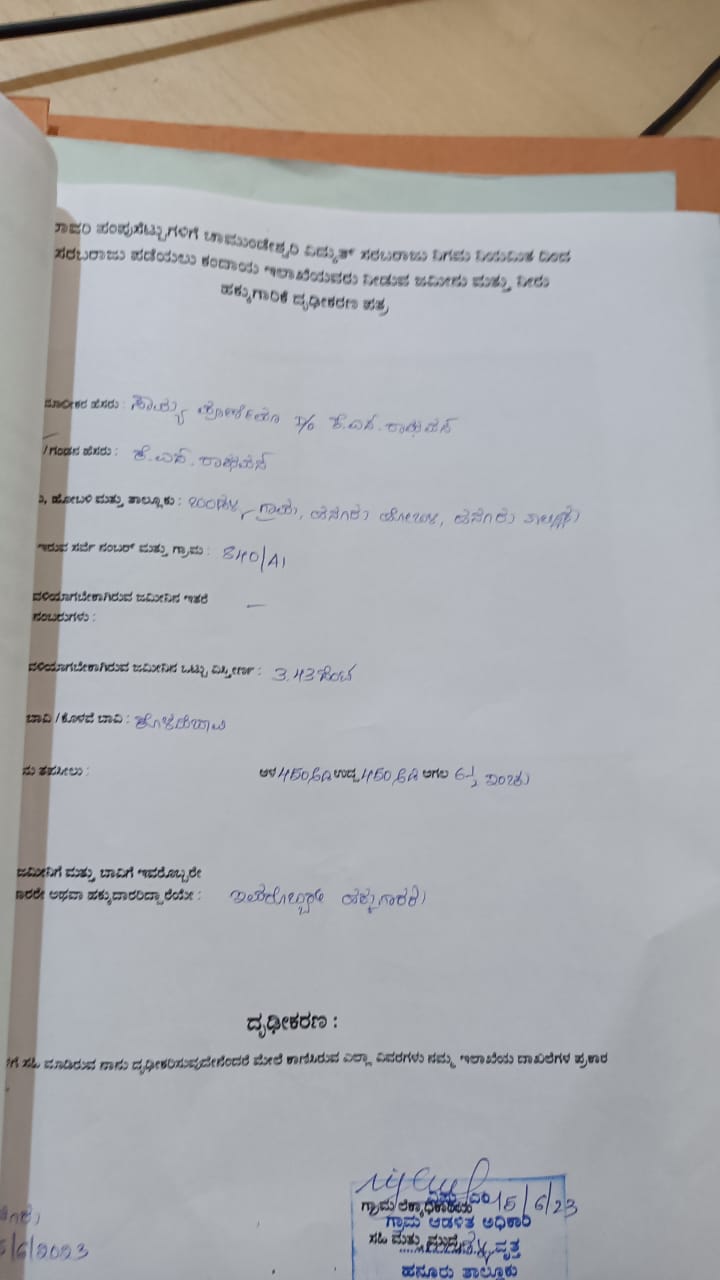 ರಾವರಿ ಪಂಪುಸೆಟ್ಟುಗಳಿಗೆ ಚಾಮುಂಡೇಶ್ವರಿ ವಿದ್ಯುತ್ ಸರಬರಾಜು ನಿಗಮ ನಿಯಮಿತ ದಿಂದ
ಸರಬರಾಜು ಪಡೆಯಲು ಕಂದಾಯ ಇಲಾಖೆಯವರು ನೀಡುವ ಜಮೀನು ಮತ್ತು ನೀರು
ಹಕ್ಕುಗಾರಿಕೆ ದೃಢೀಕರಣ ಪತ್ರ
ಮಾಲೀಕರ ಹೆಸರು : ಸೌಮ್ಯ D/o ಕೆ.ಎಸ್.
/ಗಂಡನ ಹೆಸರು : ಕೆ.ಎಸ್.
, ಹೋಬಳಿ ಮತ್ತು ತಾಲ್ಲೂಕು : ಗ್ರಾಮ, ಹನೂರು ಹೋಬಳಿ, ಹನೂರು ತಾಲ್ಲೂಕು
ಇರುವ ಸರ್ವೆ ನಂಬರ್ ಮತ್ತು ಗ್ರಾಮ : 840/A1
ವಳಿಯಾಗಬೇಕಾಗಿರುವ ಜಮೀನಿನ ಇತರೆ —
ನಂಬರುಗಳು :
ವಳಿಯಾಗಬೇಕಾಗಿರುವ ಜಮೀನಿನ ಒಟ್ಟು ವಿಸ್ತೀರ್ಣ : 3.43 ಸೆಂಟ್
ಬಾವಿ / ಕೊಳವೆ ಬಾವಿ : ಕೊಳವೆಬಾವಿ
ನು ತಹಸೀಲು : ಆಳ 450 ಅಡಿ ಉದ್ದ 450 ಅಡಿ ಅಗಲ 6½ ಇಂಚು
ಜಮೀನಿಗೆ ಮತ್ತು ಬಾವಿಗೆ ಇವರೊಬ್ಬರೇ
ದಾರರೇ ಅಥವಾ ಹಕ್ಕುದಾರರಿದ್ದಾರೆಯೇ : ಇವರೊಬ್ಬರೇ ಹಕ್ಕುದಾರರು
ದೃಢೀಕರಣ :
ಗೆ ಸಹಿ ಮಾಡಿರುವ ನಾನು ದೃಢೀಕರಿಸುವುದೇನೆಂದರೆ ಮೇಲೆ ಕಾಣಿಸಿರುವ ಎಲ್ಲಾ ವಿವರಗಳು ನಮ್ಮ ಇಲಾಖೆಯ ದಾಖಲೆಗಳ ಪ್ರಕಾರ
15/6/23
ಗ್ರಾಮ ಲೆಕ್ಕಾಧಿಕಾರಿಯ
ಗ್ರಾಮ ಆಡಳಿತ ಅಧಿಕಾರಿ
ಸಹಿ ಮತ್ತು ಮುದ್ರೆ
ವೃತ್ತ
5/6/2023
ಹನೂರು ತಾಲ್ಲೂಕು